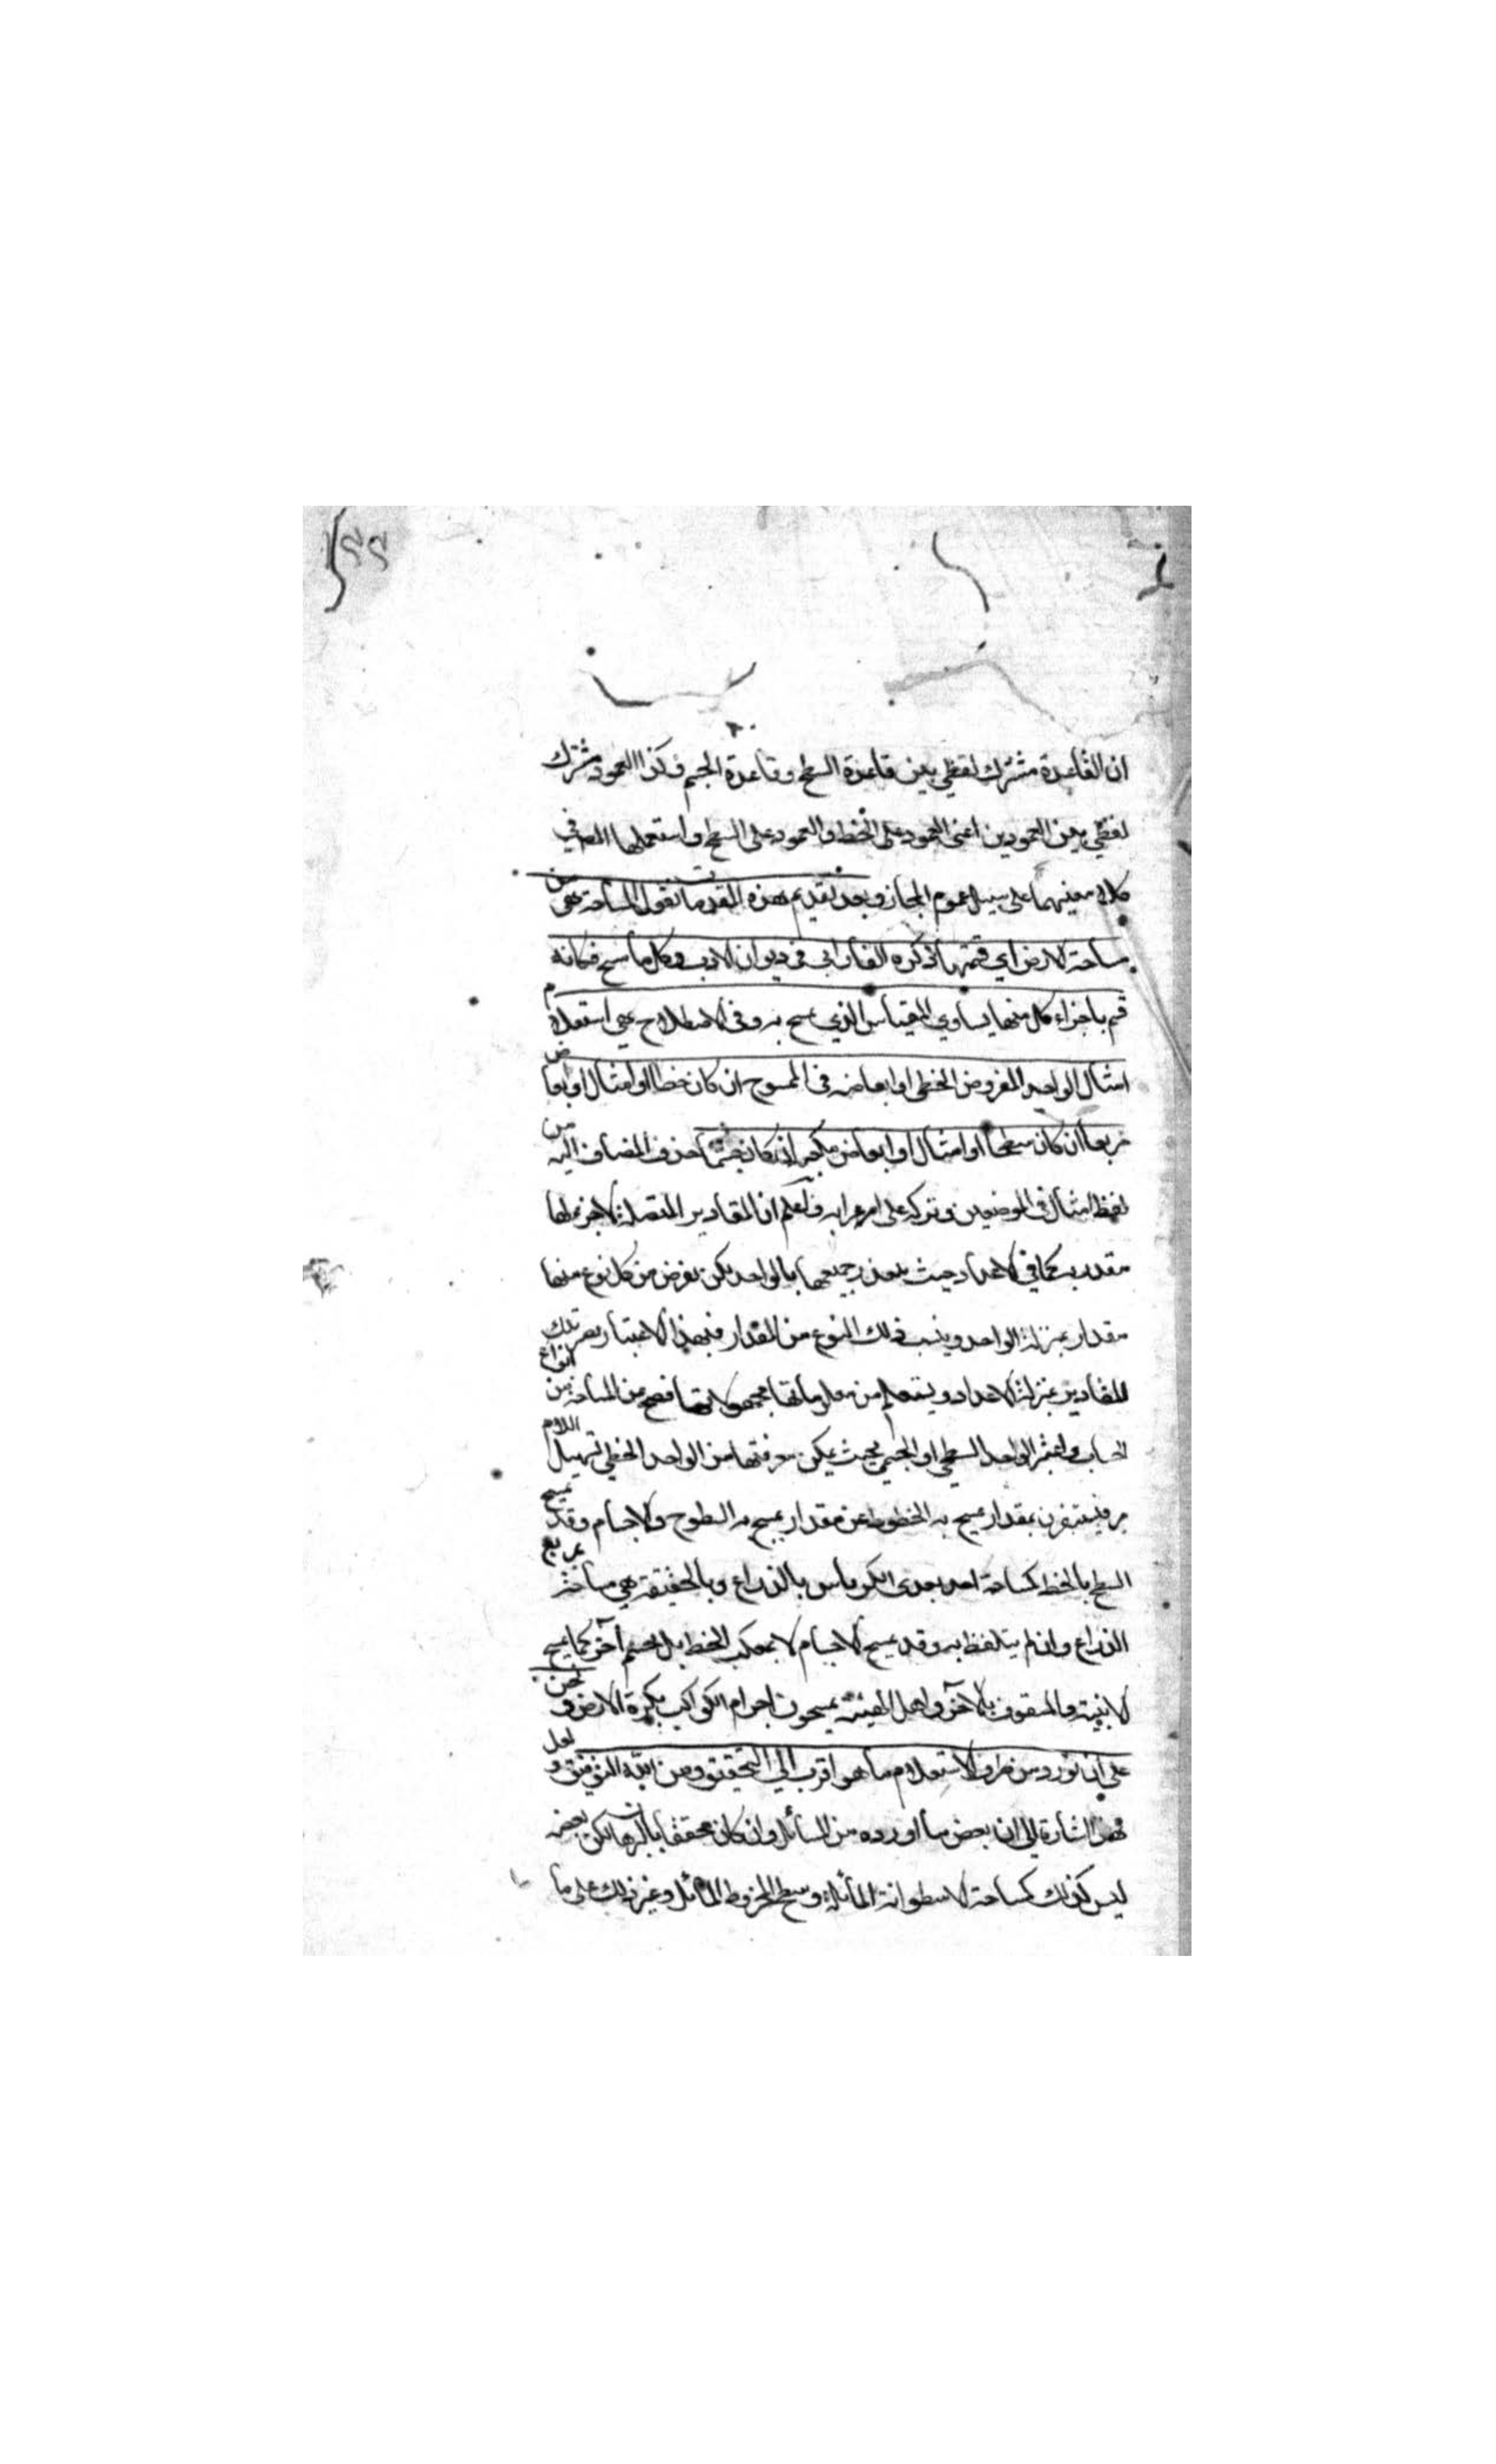 ان القاعدة مشترك لفظي بين قاعدة السطح وقاعدة الجسم وكذا العمود مشترك
لفظي بين العمودين اعنى العمود على الخط والعمود على السطح واستعملها المص في
كلا معنييهما على سبيل عموم المجاز وبعد تقديم هذه المقدمات نقول المساحة هى من
مساحة الارض اي قسمتها ذكره الفارابى فى ديوان الادب وكل ما مسح فكانه
قسم باجزاء كل منها يساوي المقياس الذي يمسح به وفى الاصطلاح هى استعلام
امثال الواحد المفروض الخطى او ابعاضه فى الممسوح ان كان خطا او امثال او ابعاض
مربعها ان كان سطحا او امثال او ابعاض مكعبه ان كان جسما حذف المضاف اليه من
لفظ امثال فى الموضعين وتركه على اعرابه ولتعلم ان المقادير المتصلة لا جزء لها
مقدر به كما فى الاعداد حيث يعد جميعها بالواحد لكن يفرض من كل نوع منها
مقدار بمنزلة الواحد وينسب ذلك النوع من المقدار فبهذا الاعتبار يصير تلك
المقادير بمنزلة الاعداد ويستعلم من معلوماتها مجهولاتها فصح عد المساحة من انواع
الحساب واعتبر الواحد السطحى او الجسمى بحيث يمكن معرفتها من الواحد الخطى لتسهيل الامر
فيستغنون بمقدار يمسح به الخطوط عن مقدار يمسح به السطوح والاجسام وقد يمسح
السطح بالخط كمساحة احد بعدى الكرباس بالذراع وبالحقيقة هى مساحته بمربع
الذراع وان لم يتلفظ به وقد يمسح الاجسام لا بمكعب الخط بل بجسم آخر كما يمسح
الابنية والسقوف بالآجر واهل الهيئة يمسحون اجرام الكواكب بكرة الارض ونحن
على ان نورد من طرق الاستعلام ما هو اقرب الى التحقيق ومن الله التوفيق ولعل
هذا اشارة الى ان بعض ما اورده من المسائل وان كان محققا بالبرهان لكن بعضه
ليس كذلك كمساحة الاسطوانة المائلة وسطح المخروط المائل وغير ذلك على ما